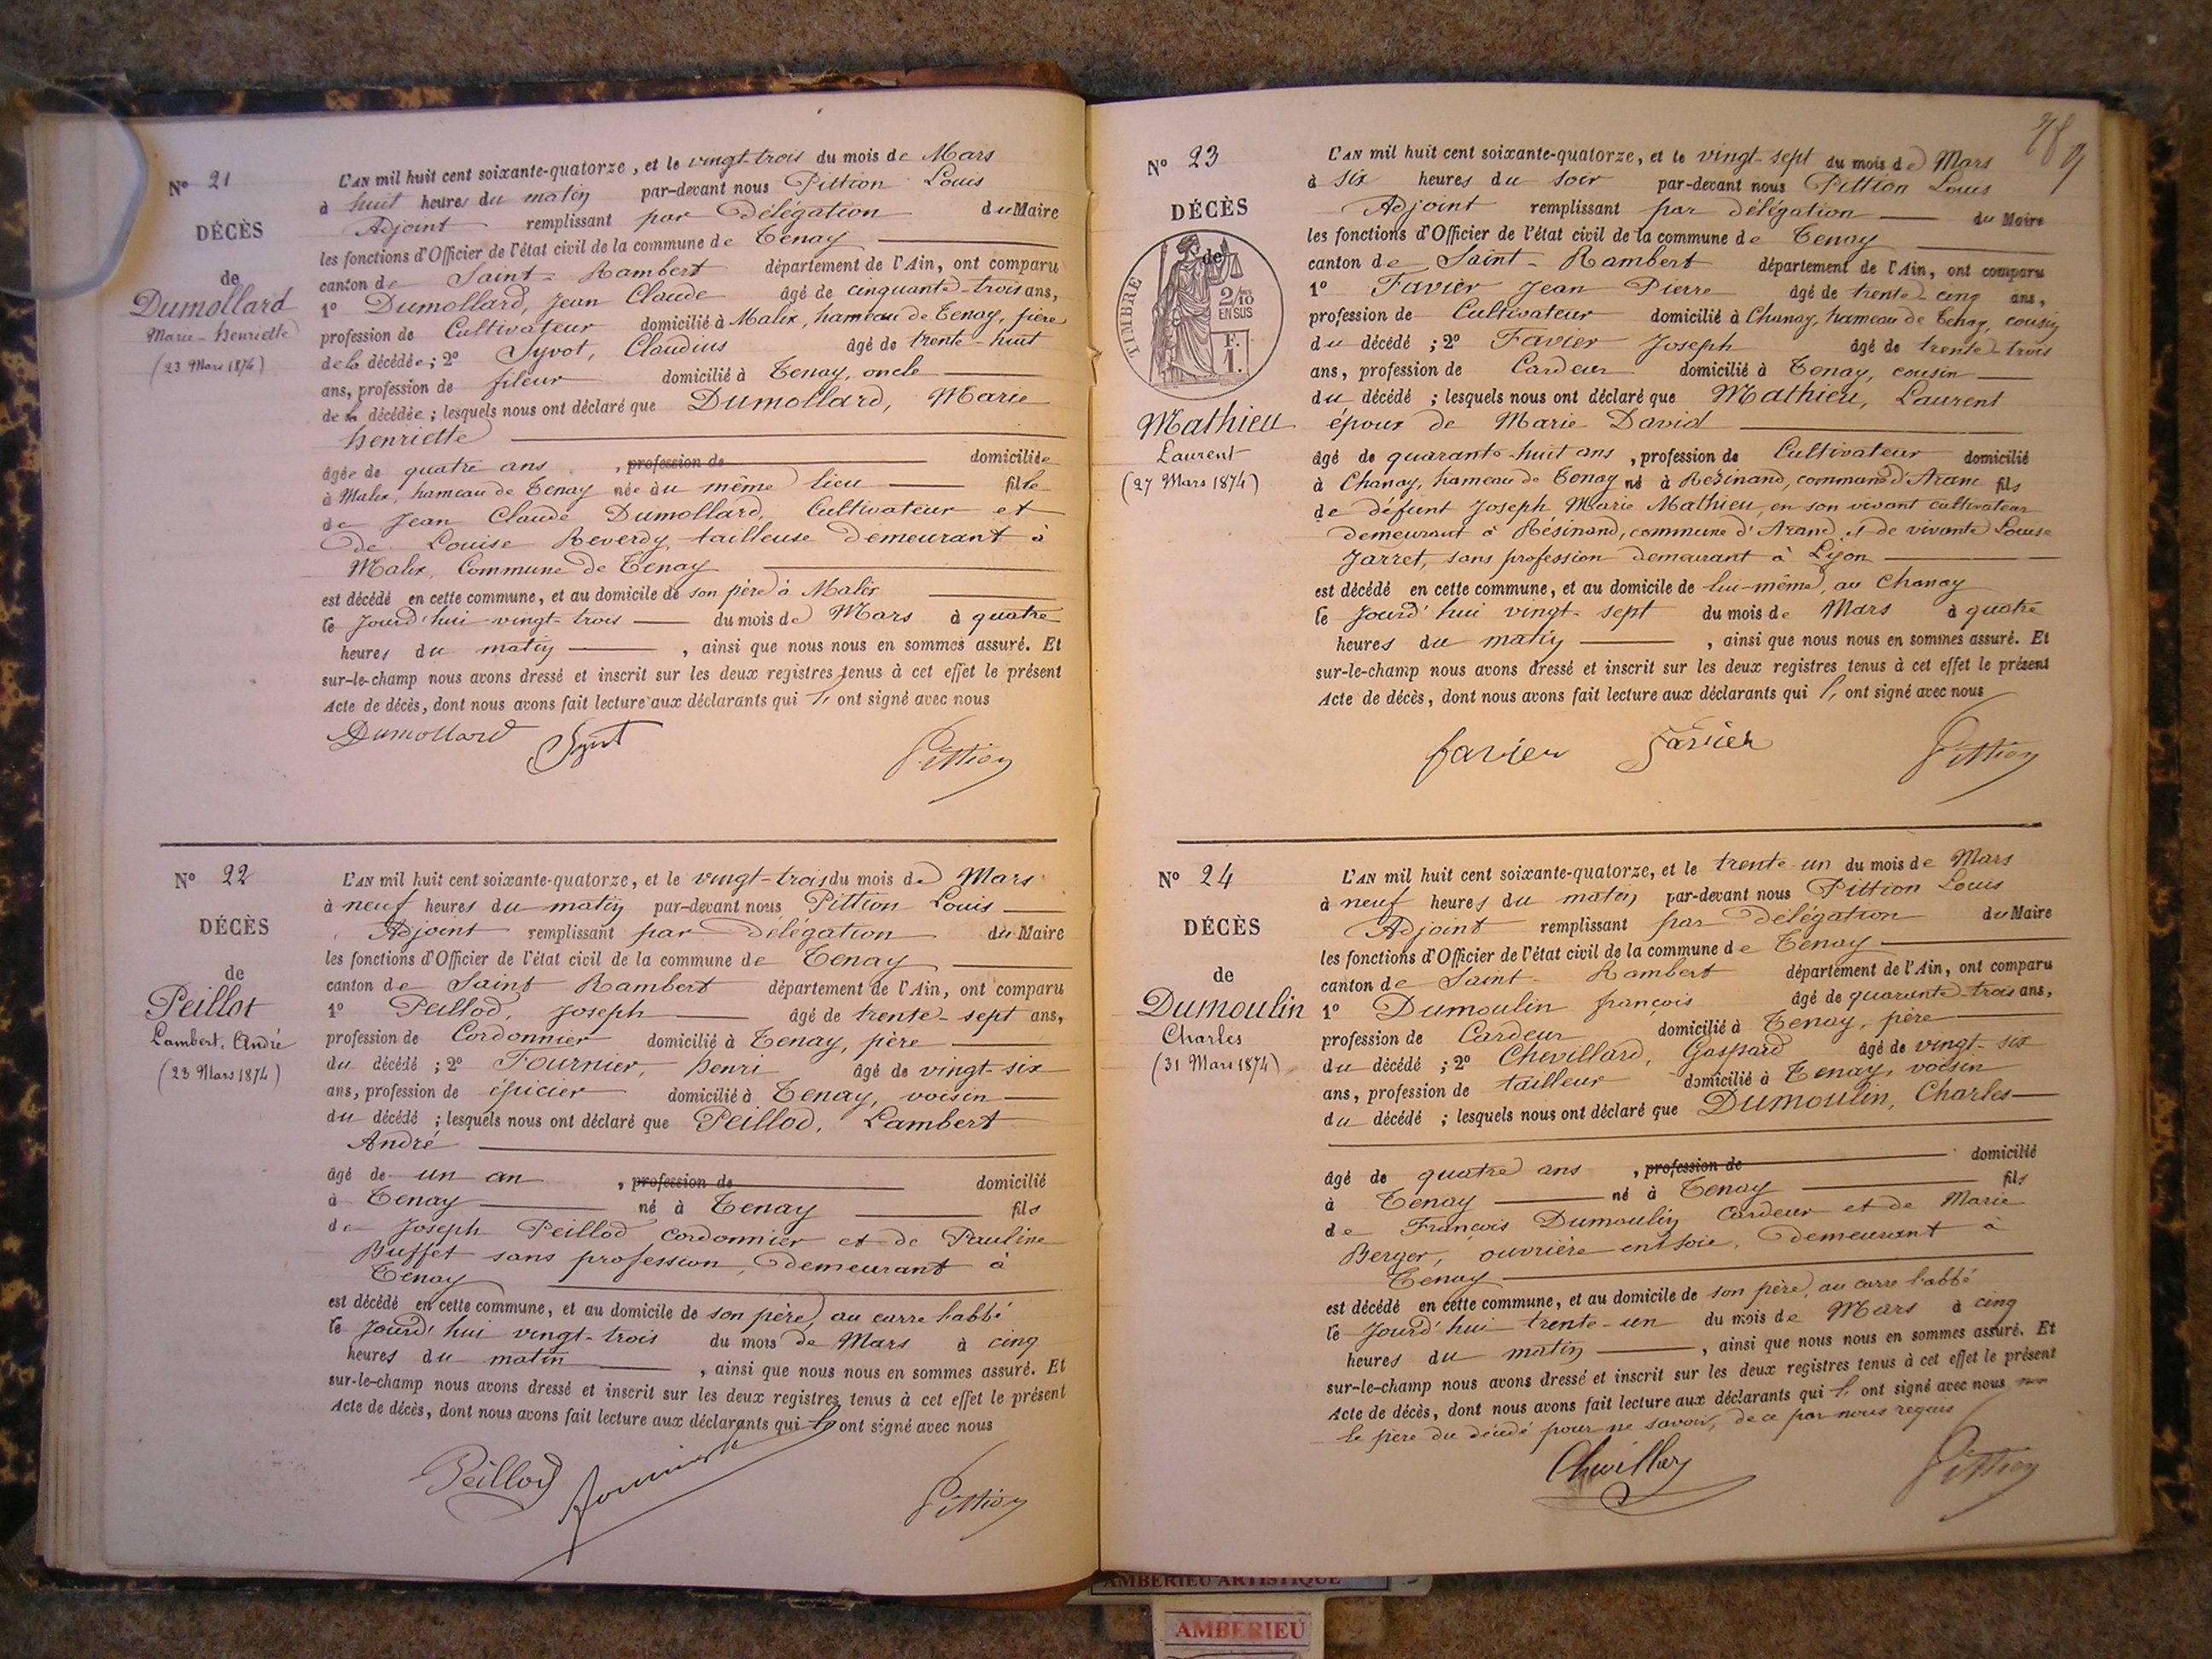 N° 21
DÉCÈS
de
Dumollard
Marie-henriette
(23 Mars 1874)
L'AN mil huit cent soixante-quatorze, et le vingt-trois du mois de Mars
à huit heures du matin par-devant nous Pittion Louis
Adjoint remplissant par Délégation du Maire
les fonctions d'Officier de l'état civil de la commune de Tenay
canton de Saint-Rambert département de l'Ain, ont comparu
1° Dumollard, Jean Claude âgé de cinquante-trois ans,
profession de Cultivateur domicilié à Malix, hameau de Tenay, père
de la décédée ; 2° Syvot, Claudius âgé de trente-huit
ans, profession de fileur domicilié à Tenay, oncle
de la décédée ; lesquels nous ont déclaré que Dumollard, Marie
henriette
âgée de quatre ans , profession de domiciliée
à Malix, hameau de Tenay née au même lieu fille
de Jean Claude Dumollard, Cultivateur et
de Louise Reverdy, tailleuse Demeurant à
Malix, Commune de Tenay
est décédé en cette commune, et au domicile de son père à Malix
le Jourd'hui vingt-trois du mois de Mars à quatre
heures du matin , ainsi que nous nous en sommes assuré. Et
sur-le-champ nous avons dressé et inscrit sur les deux registres tenus à cet effet le présent
Acte de décès, dont nous avons fait lecture aux déclarants qui l' ont signé avec nous
Dumollard Syvot Pittion
N° 22
DÉCÈS
de
Peillot
Lambert, André
(23 Mars 1874)
L'AN mil huit cent soixante-quatorze, et le vingt-trois du mois de Mars
à neuf heures du matin par-devant nous Pittion Louis
Adjoint remplissant par Délégation du Maire
les fonctions d'Officier de l'état civil de la commune de Tenay
canton de Saint Rambert département de l'Ain, ont comparu
1° Peillod, Joseph âgé de trente-sept ans,
profession de Cordonnier domicilié à Tenay, père
du décédé ; 2° Fournier, henri âgé de vingt-six
ans, profession de épicier domicilié à Tenay, voisin
du décédé ; lesquels nous ont déclaré que Peillod, Lambert
André
âgé de un an , profession de domicilié
à Tenay né à Tenay fils
de Joseph Peillod Cordonnier et de Pauline
Buffet sans profession, Demeurant à
Tenay
est décédé en cette commune, et au domicile de son père, au carre l'abbé
le Jourd'hui vingt-trois du mois de Mars à cinq
heures du matin , ainsi que nous nous en sommes assuré. Et
sur-le-champ nous avons dressé et inscrit sur les deux registres tenus à cet effet le présent
Acte de décès, dont nous avons fait lecture aux déclarants qui l' ont signé avec nous
Peillod Pittion
N° 23
DÉCÈS
de
TIMBRE
2/10
EN SUS
F.
1.
Mathieu
Laurent
(27 Mars 1874)
L'AN mil huit cent soixante-quatorze, et le vingt-sept du mois de Mars
à six heures du soir par-devant nous Pittion Louis
Adjoint remplissant par délégation du Maire
les fonctions d'Officier de l'état civil de la commune de Tenay
canton de Saint-Rambert département de l'Ain, ont comparu
1° Favier Jean Pierre âgé de trente-cinq ans,
profession de Cultivateur domicilié à Chanay, hameau de Tenay, cousin
du décédé ; 2° Favier Joseph âgé de trente-trois
ans, profession de Cardeur domicilié à Tenay, cousin
du décédé ; lesquels nous ont déclaré que Mathieu, Laurent
époux de Marie David
âgé de quarante-huit ans , profession de Cultivateur domicilié
à Chanay, hameau de Tenay né à Résinand, commune d'Aranc fils
de défunt Joseph Marie Mathieu, en son vivant cultivateur
demeurant à Résinand, commune d'Aranc, et de vivante Louise
Jarret, sans profession demeurant à Lyon
est décédé en cette commune, et au domicile de lui-même, au Chanay
le Jourd'hui vingt-sept du mois de Mars à quatre
heures du matin , ainsi que nous nous en sommes assuré. Et
sur-le-champ nous avons dressé et inscrit sur les deux registres tenus à cet effet le présent
Acte de décès, dont nous avons fait lecture aux déclarants qui l' ont signé avec nous
favier favier Pittion
N° 24
DÉCÈS
de
Dumoulin
Charles
(31 Mars 1874)
L'AN mil huit cent soixante-quatorze, et le trente-un du mois de Mars
à neuf heures du matin par-devant nous Pittion Louis
Adjoint remplissant par Délégation du Maire
les fonctions d'Officier de l'état civil de la commune de Tenay
canton de Saint-Rambert département de l'Ain, ont comparu
1° Dumoulin françois âgé de quarante-trois ans,
profession de Cardeur domicilié à Tenay, père
du décédé ; 2° Chevillard, Gaspard âgé de vingt-six
ans, profession de tailleur domicilié à Tenay, voisin
du décédé ; lesquels nous ont déclaré que Dumoulin, Charles
âgé de quatre ans , profession de domicilié
à Tenay né à Tenay fils
de François Dumoulin Cardeur et de Marie
Berger, ouvrière en soie, Demeurant à
Tenay
est décédé en cette commune, et au domicile de son père, au carre l'abbé
le Jourd'hui trente-un du mois de Mars à cinq
heures du matin , ainsi que nous nous en sommes assuré. Et
sur-le-champ nous avons dressé et inscrit sur les deux registres tenus à cet effet le présent
Acte de décès, dont nous avons fait lecture aux déclarants qui l' ont signé avec nous non
le père du décédé pour ne savoir, de ce par nous requis
Pittion
AMBERIEU ARTISTIQUE
AMBERIEU